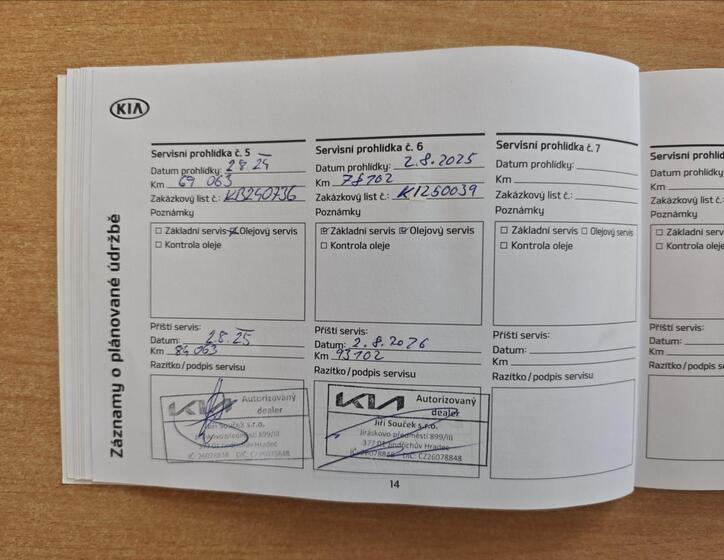 KIA
Záznamy o plánované údržbě
Servisní prohlídka č. 5
Datum prohlídky: 28.24
Km 69 063
Zakázkový list č.: KB240736
Poznámky
Základní servis Olejový servis
Kontrola oleje
Příští servis:
Datum: 28.25
Km 84 063
Razítko/podpis servisu
KIA Autorizovaný
dealer
Jiří Souček s.r.o.
Jiráskovo předměstí 899/III
377 01 Jindřichův Hradec
IČ 26078848
Servisní prohlídka č. 6
Datum prohlídky: 2.8.2025
Km 78102
Zakázkový list č.: K1250039
Poznámky
Základní servis Olejový servis
Kontrola oleje
Příští servis:
Datum: 2.8.2026
Km 93102
Razítko/podpis servisu
KIA Autorizovaný
dealer
Jiří Souček s.r.o.
Jiráskovo předměstí 899/III
377 01 Jindřichův Hradec
IČ 26078848 DIČ: CZ26078848
Servisní prohlídka č. 7
Datum prohlídky:
Km
Zakázkový list č.:
Poznámky
Základní servis Olejový servis
Kontrola oleje
Příští servis:
Datum:
Km
Razítko/podpis servisu
14
Servisní prohlíd
Datum prohlídky
Km
Zakázkový list č
Poznámky
Základní ser
Kontrola ole
Příští servis:
Datum:
Km
Razítko/podpis